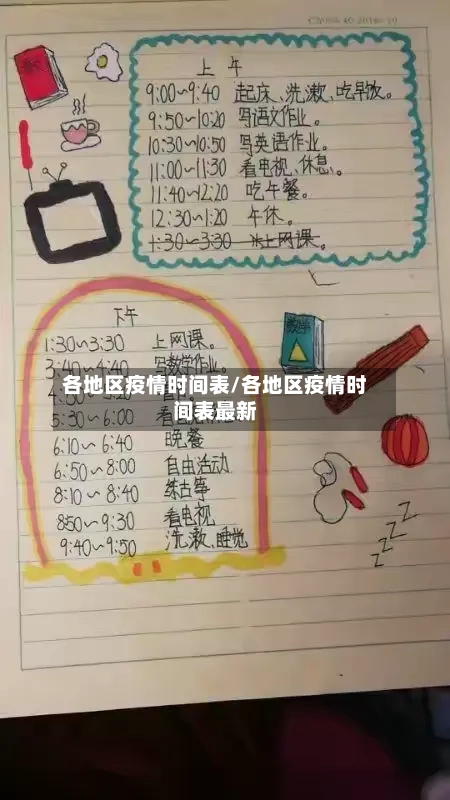 上午
9:00~9:40 起床、洗漱、吃早饭。
9:50~10:20 写语文作业。
10:30~10:50 写英语作业。
11:00~11:30 看电视、休息。
11:40~12:20 吃午餐。
12:30~1:20 午休。
1:30~3:30 上网课。
下午
1:30~3:30 上网课。
3:40~4:40 写数学作业。
各地区疫情时间表/各地区疫情时
间表最新
5:30~6:00 看
6:10~6:40 晚餐
6:50~8:00 自由活动
8:10~8:40 练古筝
850~9:30 看电视
9:40~9:50 洗漱、睡觉
数学
Z Z Z Z